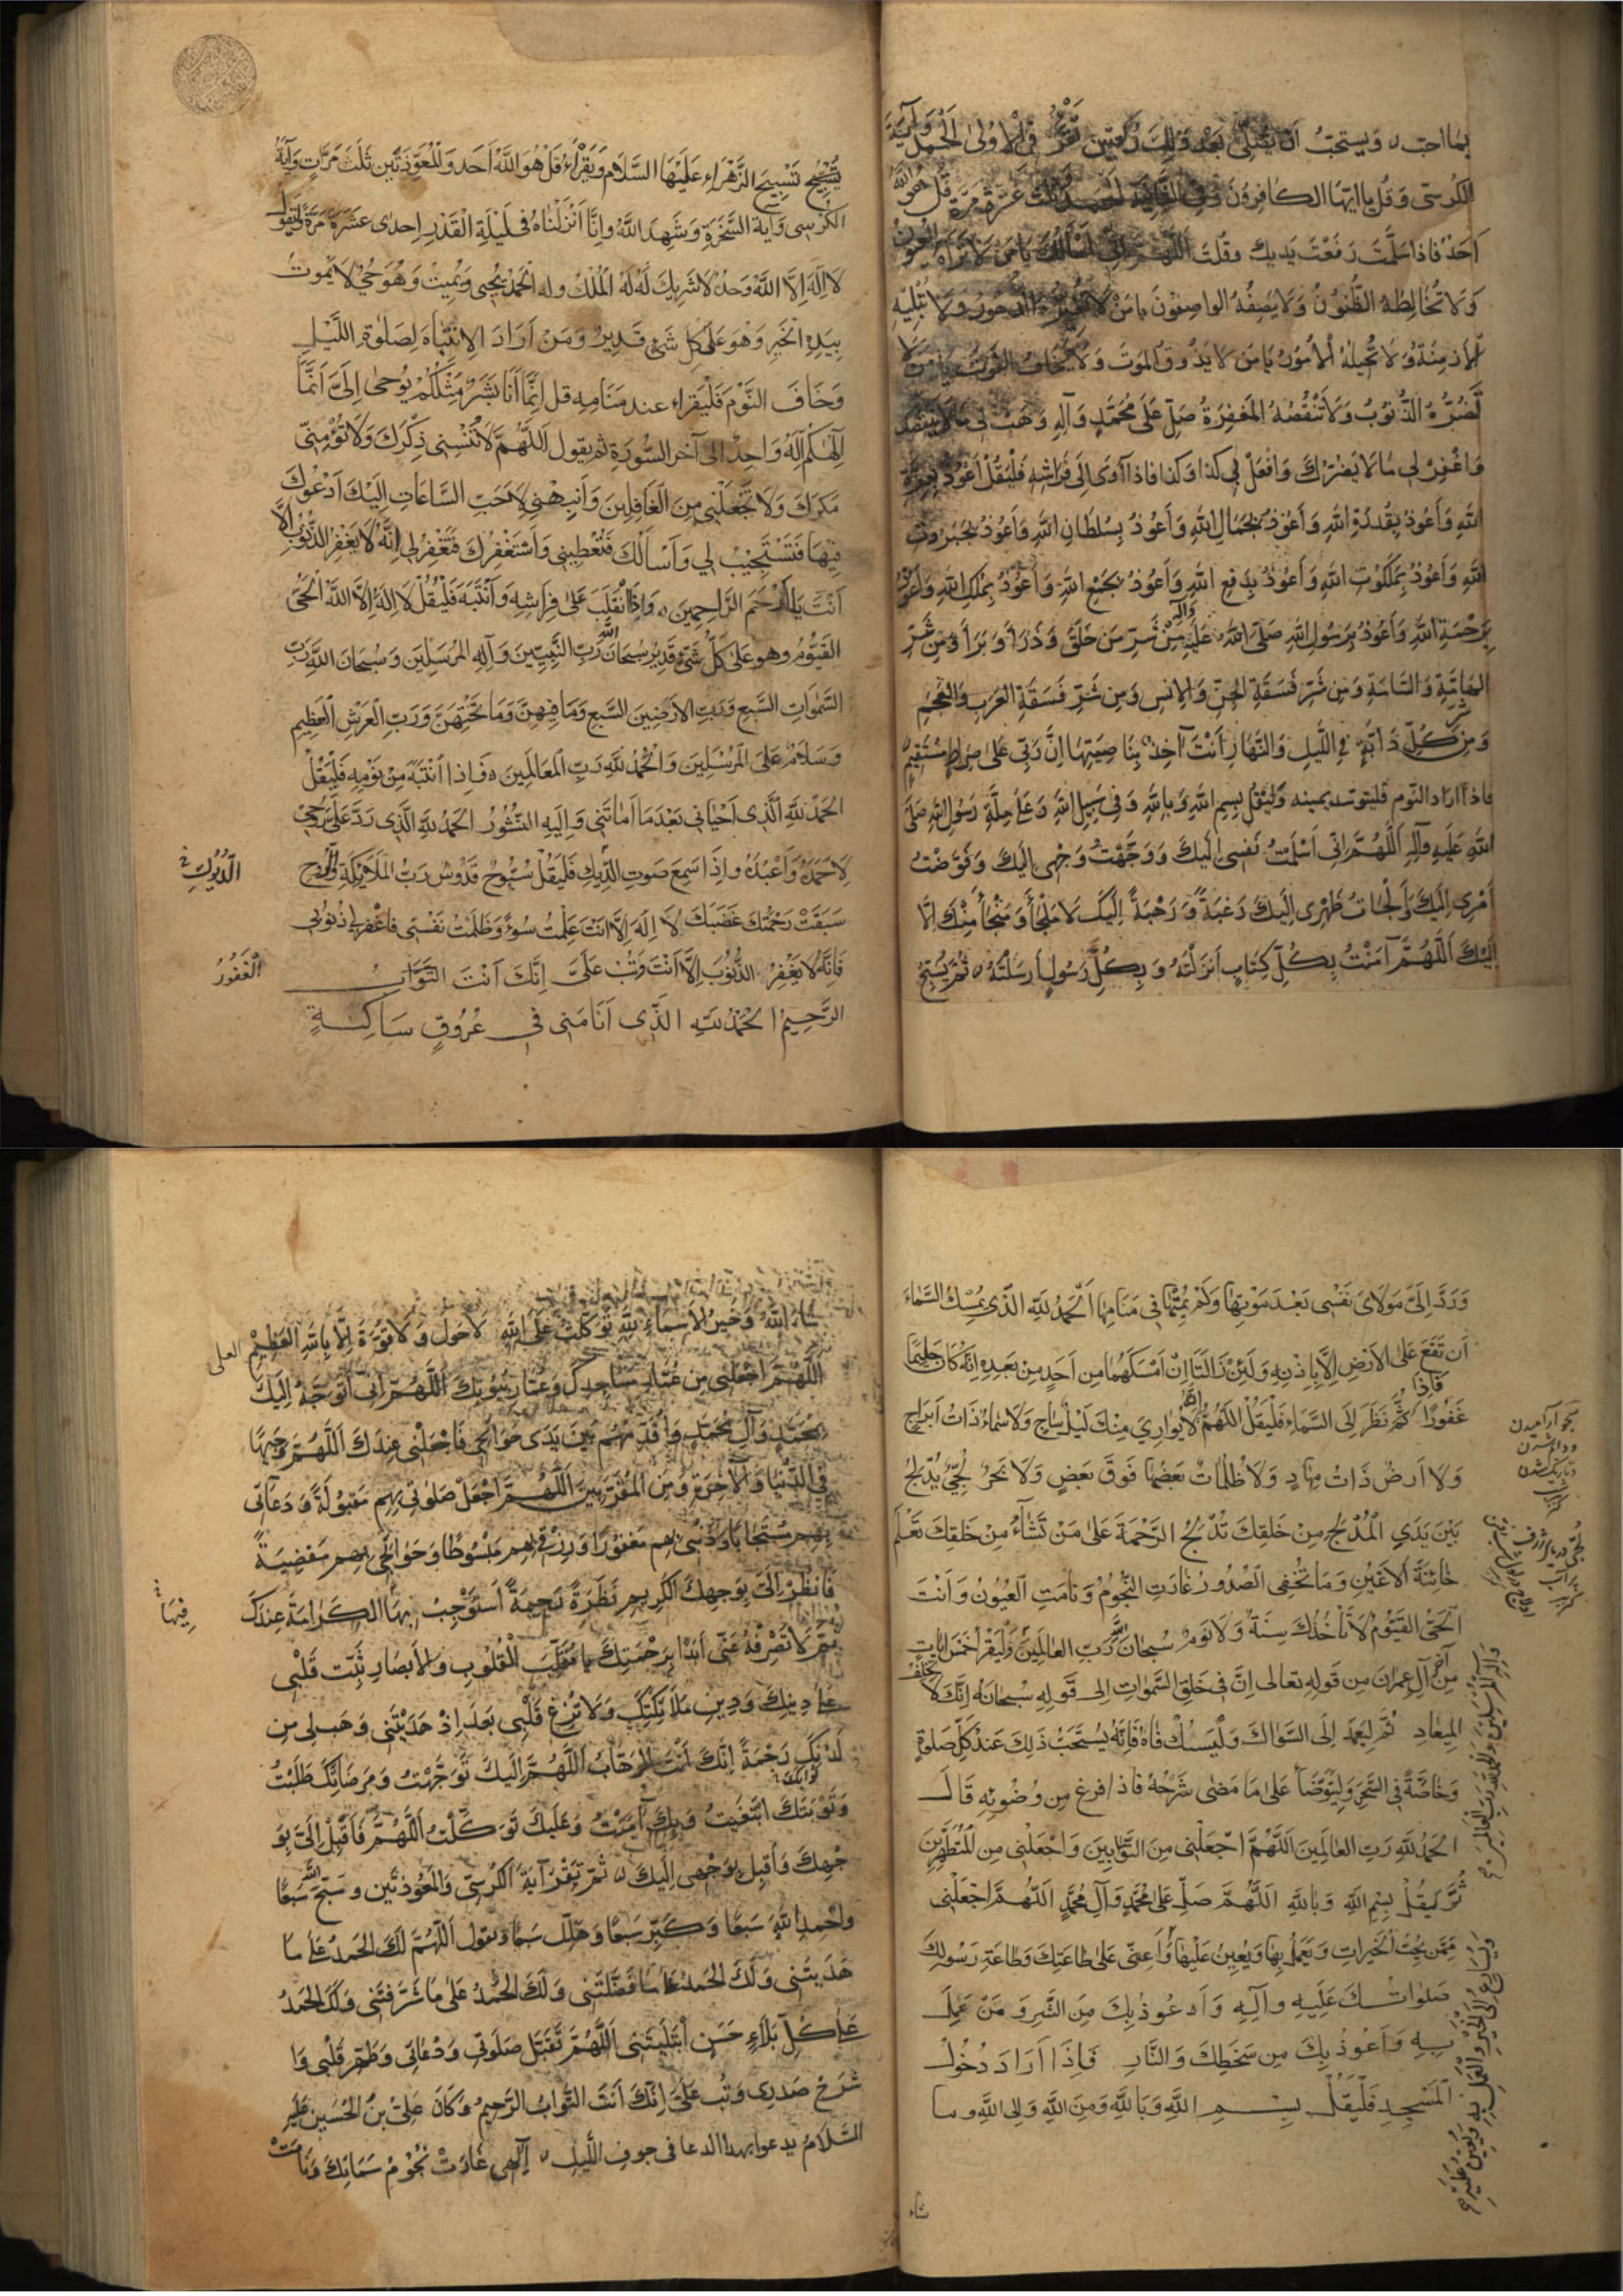 بما احب ويستحب ان يصلى بعد ذلك ركعتين تقرء فى الاولى الحمد وآية
الكرسى وَقُل يا ايّها الكافرونَ وفى الثانية الحمد وثلث عشرة مرة قُل هو الله
اَحَدٌ فاذا سَلَّمتَ رَفَعْتَ يَديك وقُلتَ اللّهمّ انى اسألك يا مَن لا تَراه العيون
وَلا تُخالِطُهُ الظُّنونُ وَلا يَصِفُهُ الواصِفونَ يا مَنْ لا تغيّره الدهور ولا تُبليهِ
الأزمِنَةُ وَلا تُحيلهُ الأمورُ يا مَن لا يَذُوق الموتَ وَلا يَخاف الفوت يا من لا
تَضُرُّهُ الذُّنوبُ وَلا تَنْقُصُهُ المَغفِرَةُ صَلِّ عَلى مُحَمَّدٍ وَآلِهِ وَهَبْ لى ما لا ينقصك
وَاغْفِرْ لى ما لا يَضُرّكَ وَافْعَلْ بى كذا وكذا فاذا آوَى الى فراشِهِ فَليَقُلْ اَعُوذُ بعِزَّةِ
اللهِ وَاَعُوذُ بِقُدرَةِ اللهِ وَاَعُوذُ بجَمالِ اللهِ وَاَعُوذُ بِسُلطانِ اللهِ وَاَعُوذُ بجَبَروتِ
اللهِ وَاَعُوذُ بِمَلَكُوتِ اللهِ وَاَعُوذُ بِدَفعِ اللهِ وَاَعُوذُ بجَمْعِ اللهِ وَاَعُوذُ بِمُلكِ اللهِ وَاَعُوذُ
بِرَحْمَةِ اللهِ وَاَعُوذُ بِرَسُولِ اللهِ صَلّى اللهُ عَلَيهِ وَآلِهِ مِنْ شَرِّ مَن خَلَقَ وَذَرَأ وَبَرَأ وَمِن شَرِّ
الهامَّةِ وَالسّامَّةِ وَمِن شَرِّ فَسَقَةِ الجِنِّ وَالاِنسِ وَمِن شَرِّ فَسَقَةِ العَرَبِ وَالعَجَمِ
وَمِن شَرِّ كُلِّ دابَّةٍ فى اللَّيلِ وَالنَّهارِ اَنْتَ آخِذٌ بِناصِيَتِها اِنَّ رَبّى عَلى صِراطٍ مُستَقيمٍ
فاذا اراد النّوم فليتوسّد يمينه وَليَقُل بِسمِ اللهِ وَبِاللهِ وَفى سَبيلِ اللهِ وَعَلى مِلَّةِ رَسُولِ اللهِ صَلّى
اللهُ عَلَيهِ وَآلِهِ اَللّهُمَّ انّى اَسْلَمْتُ نَفْسى اِلَيكَ وَوَجَّهْتُ وَجْهى اِلَيكَ وَفَوَّضْتُ
اَمْرى اِلَيكَ وَاَلْجَاتُ ظَهْرى اِلَيكَ رَغبَةً وَرَهْبَةً اِلَيكَ لا مَلجَأ وَمَنْجَأ مِنْكَ اِلّا
اِلَيْكَ اَللّهُمَّ آمَنْتُ بِكُلِّ كِتابٍ اَنزَلْتَهُ وَبِكُلِّ رَسُولٍ اَرسَلْتَهُ ثُمَّ يُسَبِّح
يُسَبِّح تَسْبيحَ الزَّهْراءِ عَلَيْهَا السَّلام وَيَقْرَأ قُلْ هُوَ اللَّهُ اَحَد وَالمُعَوِّذَتَين ثَلَثَ مَرّاتٍ وَآيَةَ
الكُرسى وَآية السُّخْرَةِ وَشَهِدَ اللَّهُ وانّا اَنْزَلناهُ فى لَيلَةِ القَدْرِ اِحدى عَشَرَةَ مَرَّةً ليَقول
لا اِلهَ اِلّا اللَّهُ وَحدَهُ لا شَريكَ لَهُ لَهُ المُلكُ وله الحَمدُ يُحيى وَيُميتُ وَهُوَ حَىٌّ لا يَمُوتُ
بِيَدِهِ الخَير وَهُوَ عَلى كُلِّ شَئٍ قَديرٌ وَمَنْ اَرادَ الاِنتِباهَ لِصَلوةِ اللَّيْلِ
وَخافَ النَّوْم فَليَقرَاء عند مَنامِهِ قل اِنَّما اَنَا بَشَرٌ مِثلُكُمْ يُوحى اِلَىَّ اَنَّما
اِلهُكُم اِلهٌ وَاحِدٌ الى آخر السُّورَةِ ثم يقول اَللَّهُمَّ لا تُنْسِنى ذِكْرَكَ وَلا تُؤْمِنّى
مَكرَكَ وَلا تَجْعَلْنى مِنَ الغافِلينَ وَاَنبِهْنى لِاَحَبِّ السّاعاتِ اِلَيكَ اَدْعُوكَ
فيها فَتَسْتَجيبُ لى وَاَسألُكَ فَتُعْطينى وَاَستَغْفِرُكَ فَتَغْفِرُ لى اِنَّهُ لا يَغْفِرُ الذُّنوبَ اِلّا
اَنْتَ يا اَرْحَمَ الرّاحِمينَ وَاِذا انْقَلَبَ عَلى فِراشِهِ وَانْتَبَهَ فَليَقُلْ لا اِلهَ اِلّا اللَّهُ الحَىُّ
القَيّومُ وهو عَلى كُلِّ شَئٍ قَديرٌ سُبحانَ اللَّهِ رَبِّ النَّبِيّينَ وَآلِهِ المُرسَلينَ وَسُبحانَ اللَّهِ رَبِّ
السَّمواتِ السَّبعِ وَرَبِّ الاَرَضينَ السَّبعِ وَما فيهِنَّ وَما تَحْتَهُنَّ وَرَبِّ العَرشِ العَظيمِ
وَسَلامٌ عَلَى المُرْسَلينَ وَالحَمدُ للَّهِ رَبِّ العالَمينَ فَاِذا انْتَبَهَ مِنْ نَوْمِهِ فَليَقُلْ
الحَمدُ للَّهِ الَّذى اَحْيانى بَعْدَما اَماتَنى وَاِلَيهِ النُّشُورُ الحَمدُ للَّهِ الَّذى رَدَّ عَلَىَّ رُوحى
لِاَحمَدَهُ وَاَعْبُدَهُ واِذا سَمِعَ صَوتَ الدّيكِ فَليَقُلْ سُبّوحٌ قُدّوسٌ رَبُّ المَلائِكَةِ وَالرُّوحِ
الدُّيُوكِ
سَبَقَتْ رَحْمَتُكَ غَضَبَكَ لا اِلهَ اِلّا اَنتَ عَمِلْتُ سُوءً وَظَلَمْتُ نَفْسى فاغْفِر لى ذُنوبى
فَاِنَّهُ لا يَغْفِرُ الذُّنُوبَ اِلّا اَنتَ وَتُبْ عَلَىَّ اِنَّكَ اَنْتَ التَّوّابُ
الغَفُورُ
الرَّحيمُ الحَمْدُ للَّهِ الَّذى اَنامَنى فى عُرُوقٍ ساكِنَةٍ
وَرَدَّ اِلَىَّ مَولاىَ نَفْسى بَعْدَ مَوْتِها وَلَمْ يُمِتْها فى مَنامِها اَلحَمدُ للَّهِ الَّذى يُمسِكُ السَّماءَ
اَن تَقَعَ عَلى الاَرضِ اِلّا بِاِذنِهِ وَلَئِنْ زالَتا اِنْ اَمْسَكَهُما مِن اَحَدٍ مِنْ بَعدِهِ اِنَّهُ كانَ حَليمًا
غَفُورًا فَاِذا ثُمَّ نَظَرَ اِلى السَّماءِ فَليَقُلْ اللَّهُمَّ اِنَّهُ لا يُوارى مِنْكَ لَيْلٌ ساجٍ وَلا سَماءٌ ذاتُ اَبراجٍ
وَلا اَرضٌ ذاتُ مِهادٍ وَلا ظُلُماتٌ بَعضُها فَوقَ بَعضٍ وَلا بَحرٌ لُجّىٌّ يُدْلِجُ
بَيْنَ يَدَىِ المُدْلِجِ مِنْ خَلقِكَ تُدْلِجُ الرَّحْمَةَ عَلى مَن تَشاءُ مِنْ خَلقِكَ تَعْلَمُ
خائِنَةَ الاَعيُنِ وَما تُخْفِى الصُّدُورُ غارَتِ النُّجُومُ وَنامَتِ العُيُونُ وَاَنتَ
الحَىُّ القَيّومُ لا تَأخُذُكَ سِنَةٌ وَلا نَومٌ سُبحانَ اللَّهِ رَبِّ العالَمينَ وَليَقرَأ خَمسَ اياتٍ
مِن آخر آلِ عِمرانَ مِن قَولِهِ تعالى اِنَّ فى خَلقِ السَّمواتِ اِلى قَولِهِ سُبحانَهُ اِنَّكَ لا تُخلِفُ
الميعادِ ثُمَّ لِيَعمِد اِلى السِّواكِ وَليَستَكْ فاهُ فَاِنَّهُ يُستَحَبُّ ذلِكَ عِندَ كُلِّ صَلوةٍ
وَخاصَّةً فى السَّحَرِ وَليَتَوَضَّأ عَلى ما مَضى شَرْحُهُ فاذا فرغ مِن وُضُوئِهِ قالَ
الحَمدُ للَّهِ رَبِّ العالَمينَ اَللَّهُمَّ اجْعَلنى مِنَ التَّوّابينَ وَاجْعَلنى مِن المُتَطَهِّرينَ
ثُمَّ لْيَقُلْ بِسمِ اللَّهِ وَبِاللَّهِ اَللَّهُمَّ صَلِّ عَلى مُحَمَّدٍ وَآلِ مُحَمَّدٍ اَللَّهُمَّ اجْعَلنى
مِمَّن يُحِبُّ الخَيراتِ وَيَعمَلُ بِها وَيُعينُ عَلَيها وَاَعِنّى عَلى طاعَتِكَ وَطاعَةِ رَسُولِكَ
صَلواتُكَ عَلَيهِ وآلِهِ وَاَعوذُ بِكَ مِنَ الشَّرِ وَمَنْ عَمِلَ
بِهِ وَاَعُوذُ بِكَ مِن سَخَطِكَ وَالنّارِ فَاِذا اَرادَ دُخُولَ
المَسْجِدِ فَليَقُلْ بِسمِ اللَّهِ وَبِاللَّهِ وَمِنَ اللَّهِ وَالى اللَّهِ وما
شاء
شاءَ اللَّهُ وَخَيرُ الاَسماءِ لِلَّهِ تَوَكَّلتُ عَلى اللَّهِ لا حَولَ وَلا قُوَّةَ اِلّا بِاللَّهِ العَظيمِ
العلى
اَللَّهُمَّ اجْعَلنى مِن عُمّارِ مَساجِدِكَ وَعُمّارِ بُيُوتِكَ اَللَّهُمَّ اِنّى اَتَوَجَّهُ اِلَيكَ
بِمُحَمَّدٍ وَآلِ مُحَمَّدٍ وَاُقَدِّمُهُم بَينَ يَدَى حَوائِجى فَاجْعَلنى عِندَكَ اَللَّهُمَّ وَجيهًا
فى الدُّنيا وَالآخِرَةِ وَمِنَ المُقَرَّبينَ اَللَّهُمَّ اجْعَلْ صَلوتى بِهِم مَقبُولَةً وَدُعائى
بِهِم مُستَجابًا وَذَنبى بِهِم مَغفُورًا وَرِزقى بِهِم مَبسُوطًا وَحَوائِجى بِهِم مَقضِيَّةً
فَانظُرْ اِلَىَّ بِوَجهِكَ الكَريمِ نَظرَةً رَحيمَةً اَستَوْجِبُ بِها الكَرامَةَ عِندَكَ
فيها
ثُمَّ لا تَصْرِفْهُ عَنّى اَبَدًا بِرَحْمَتِكَ يا مُقَلِّبَ القُلُوبِ وَالاَبصارِ ثَبِّت قَلْبى
عَلى دينِكَ وَدينِ مَلائِكَتِكَ وَلا تُزِغْ قَلْبى بَعدَ اِذْ هَدَيْتَنى وَهَب لى مِن
لَدُنكَ رَحْمَةً اِنَّكَ اَنْتَ الوَهّابُ اَللَّهُمَّ اِلَيكَ تَوَجَّهْتُ وَمَرضاتَكَ طَلَبْتُ
وَثَوَابَكَ ابْتَغَيتُ وَبِكَ آمَنْتُ وَعَلَيكَ تَوَكَّلْتُ اَللَّهُمَّ فَاَقبِلْ اِلَىَّ بِوَ
جْهِكَ وَاَقبِل بِوَجْهى اِلَيكَ ثُمَّ تَقرَأ آيَةَ الكُرسى وَالمُعَوِّذَتَين وسَبِّحِ اللَّهَ سَبعًا
وَاحْمَدِ اللَّهَ سَبعًا وَكَبِّر سَبعًا وَهَلِّل سَبعًا وَتقول اَللَّهُمَّ لَكَ الحَمدُ عَلى ما
هَدَيتَنى وَلَكَ الحَمدُ عَلى ما فَضَّلتَنى وَلَكَ الحَمْدُ عَلى ما شَرَّفتَنى وَلَكَ الحَمدُ
عَلى كُلِّ بَلاءٍ حَسَنٍ ابْتَلَيتَنى اَللَّهُمَّ تَقَبَّل صَلوتى وَدُعائى وَطَهِّر قَلْبى وَا
شْرَحْ صَدرى وَتُب عَلَىَّ اِنَّكَ اَنتَ التَّوّابُ الرَّحيمُ وَكانَ عَلىُّ بنُ الحُسَين عَلَيهِ
السَّلامُ يدعوا بهذا الدعا فى جوفِ اللَّيلِ اِلهى غارَتْ نُجُومُ سَمائِكَ وَنامَتْ